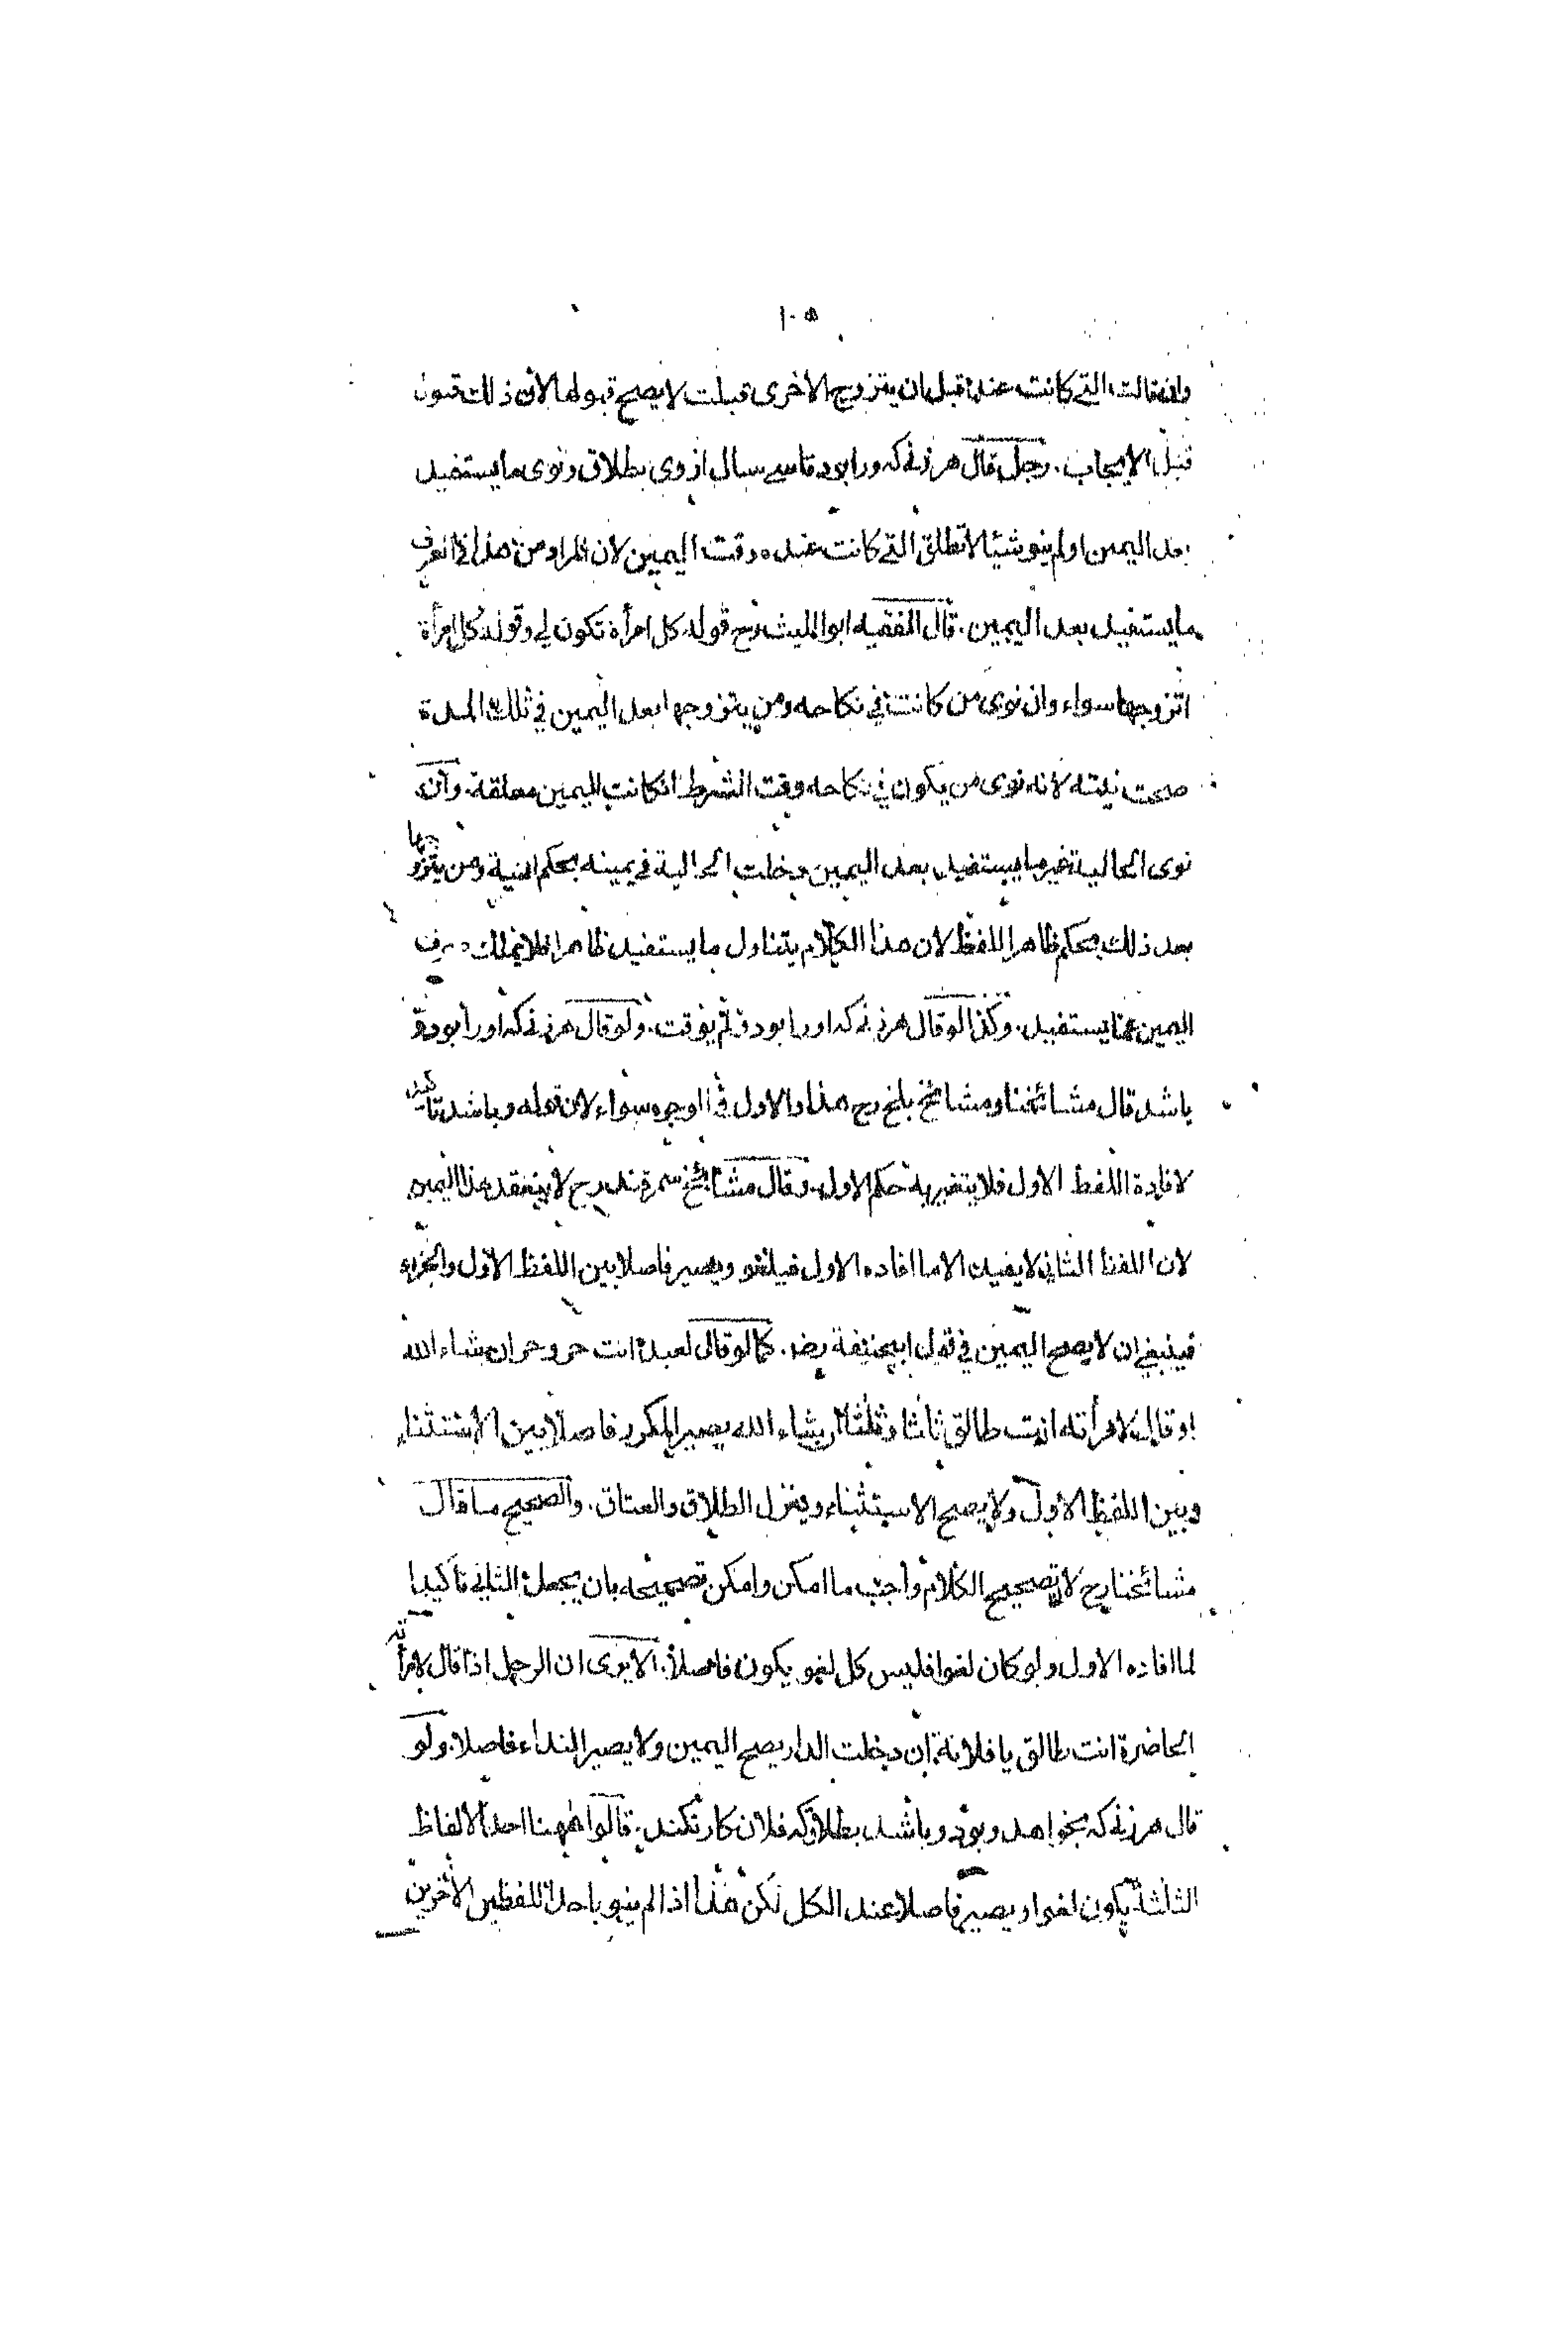 ١٠٥
وان قالت التي كانت عنده قبل ان يتزوج الاخرى قبلت لا يصح قبولها لان ذلك قبول
قبل الايجاب . رجل قال هر زنے كه ورا بود تا سے سال از وى بطلاق ونوى ما يستفيد
بعد اليمين او لم ينو شيئا لا تطلق التي كانت عنده وقت اليمين لان المراد من هذا في العرف
ما يستفيد بعد اليمين . قال الفقيه ابو الليث رح قوله كل امرأة تكون لي وقوله كل امرأة
اتزوجها سواء وان نوى من كانت في نكاحه ومن يتزوجها بعد اليمين في تلك المدة
صحت نيته لانه نوى من يكون في نكاحه وقت الشرط انكانت اليمين معلقة . وان
نوى الحالية غير ما يستفيد بعد اليمين دخلت الحالية في يمينه بحكم النية ومن يتزوجها
بعد ذلك بحكم ظاهر اللفظ لان هذا الكلام يتناول ما يستفيد ظاهرا فلا يملك صرف
اليمين عما يستفيد . وكذا لو قال هر زنے كه او را بود ولم يوقت . ولو قال هر زنے كه او را بود و
باشد قال مشائخنا ومشائخ بلخ رح هذا والاول في الوجوه سواء لان قوله وباشد تاكيد
لافادة اللفظ الاول فلا يتغير به حكم الاول . وقال مشائخ سمرقند رح لا ينعقد هذا اليمين
لان اللفظ الثاني لا يفيد الا ما افاده الاول فيلغو ويصير فاصلا بين اللفظ الاول والجزاء
فينبغي ان لا يصح اليمين في قول ابيحنيفة رضـ . كما لو قال لعبده انت حر وحر ان شاء الله
او قال لامرأته انت طالق ثلثا وثلثا ان شاء الله يصير المكرر فاصلا بين الاستثناء
وبين اللفظ الاول ولا يصح الاستثناء وينزل الطلاق والعتاق . والصحيح ما قال
مشائخنا رح لان تصحيح الكلام واجب ما امكن وامكن تصحيحه بان يجعل الثاني تاكيدا
لما افاده الاول ولو كان لغوا فليس كل لغو يكون فاصلا . الا يرى ان الرجل اذا قال لامرأته
الحاضرة انت طالق يا فلانة ان دخلت الدار يصح اليمين ولا يصير النداء فاصلا . ولو
قال هر زنے كه بخواهد وبود وباشد بطلاق كه فلان كار نكند . قالوا ههنا احد الالفاظ
الثلثة يكون لغوا ويصير فاصلا عند الكل لكن هذا اذا لم ينو باحد اللفظين الاخرين